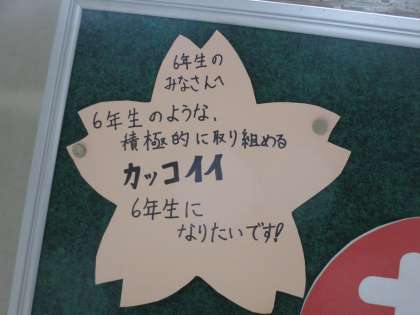 6年生の
みなさんへ
6年生のような、
積極的に取り組める
カッコイイ
6年生に
なりたいです!